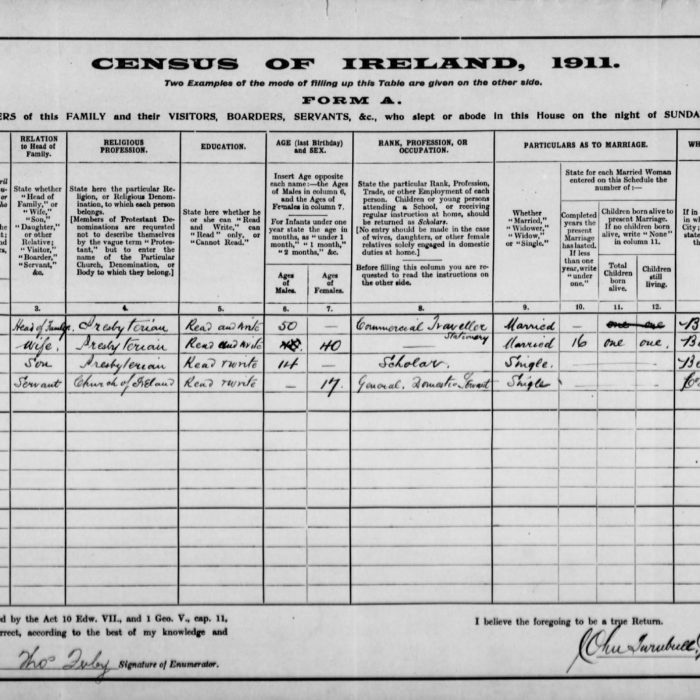 CENSUS OF IRELAND, 1911.
Two Examples of the mode of filling up this Table are given on the other side.
FORM A.
ERS of this FAMILY and their VISITORS, BOARDERS, SERVANTS, &c., who slept or abode in this House on the night of SUNDA
RELATION to Head of Family.
State whether "Head of Family," or "Wife," "Son," "Daughter," or other Relative; "Visitor," "Boarder," "Servant," &c.
3.
RELIGIOUS PROFESSION.
State here the particular Religion, or Religious Denomination, to which each person belongs.
[Members of Protestant Denominations are requested not to describe themselves by the vague term "Protestant," but to enter the name of the Particular Church, Denomination, or Body to which they belong.]
4.
EDUCATION.
State here whether he or she can "Read and Write," can "Read" only, or "Cannot Read."
5.
AGE (last Birthday) and SEX.
Insert Age opposite each name:—the Ages of Males in column 6, and the Ages of Females in column 7.
For Infants under one year state the age in months, as "under 1 month," "1 month," "2 months," &c.
Ages of Males.
6.
Ages of Females.
7.
RANK, PROFESSION, OR OCCUPATION.
State the particular Rank, Profession, Trade, or other Employment of each person. Children or young persons attending a School, or receiving regular instruction at home, should be returned as Scholars.
[No entry should be made in the case of wives, daughters, or other female relatives solely engaged in domestic duties at home.]
Before filling this column you are requested to read the instructions on the other side.
8.
PARTICULARS AS TO MARRIAGE.
Whether "Married," "Widower," "Widow," or "Single."
9.
State for each Married Woman entered on this Schedule the number of:—
Completed years the present Marriage has lasted. If less than one year, write "under one."
10.
Children born alive to present Marriage. If no children born alive, write "None" in column 11.
Total Children born alive.
11.
Children still living.
12.
WH
If in
in wh
City;
state
Head of Family Presbyterian Read and write 50 — Commercial Traveller Stationery Married — one one B
Wife. Presbyterian Read and write 40 Married 16 one one. B
Son Presbyterian Read & write 14 — Scholar. Single. B
Servant Church of Ireland Read & write — 17. General Domestic Servant Single
d by the Act 10 Edw. VII., and 1 Geo. V., cap. 11,
rrect, according to the best of my knowledge and
Signature of Enumerator.
I believe the foregoing to be a true Return.
John Turnbull